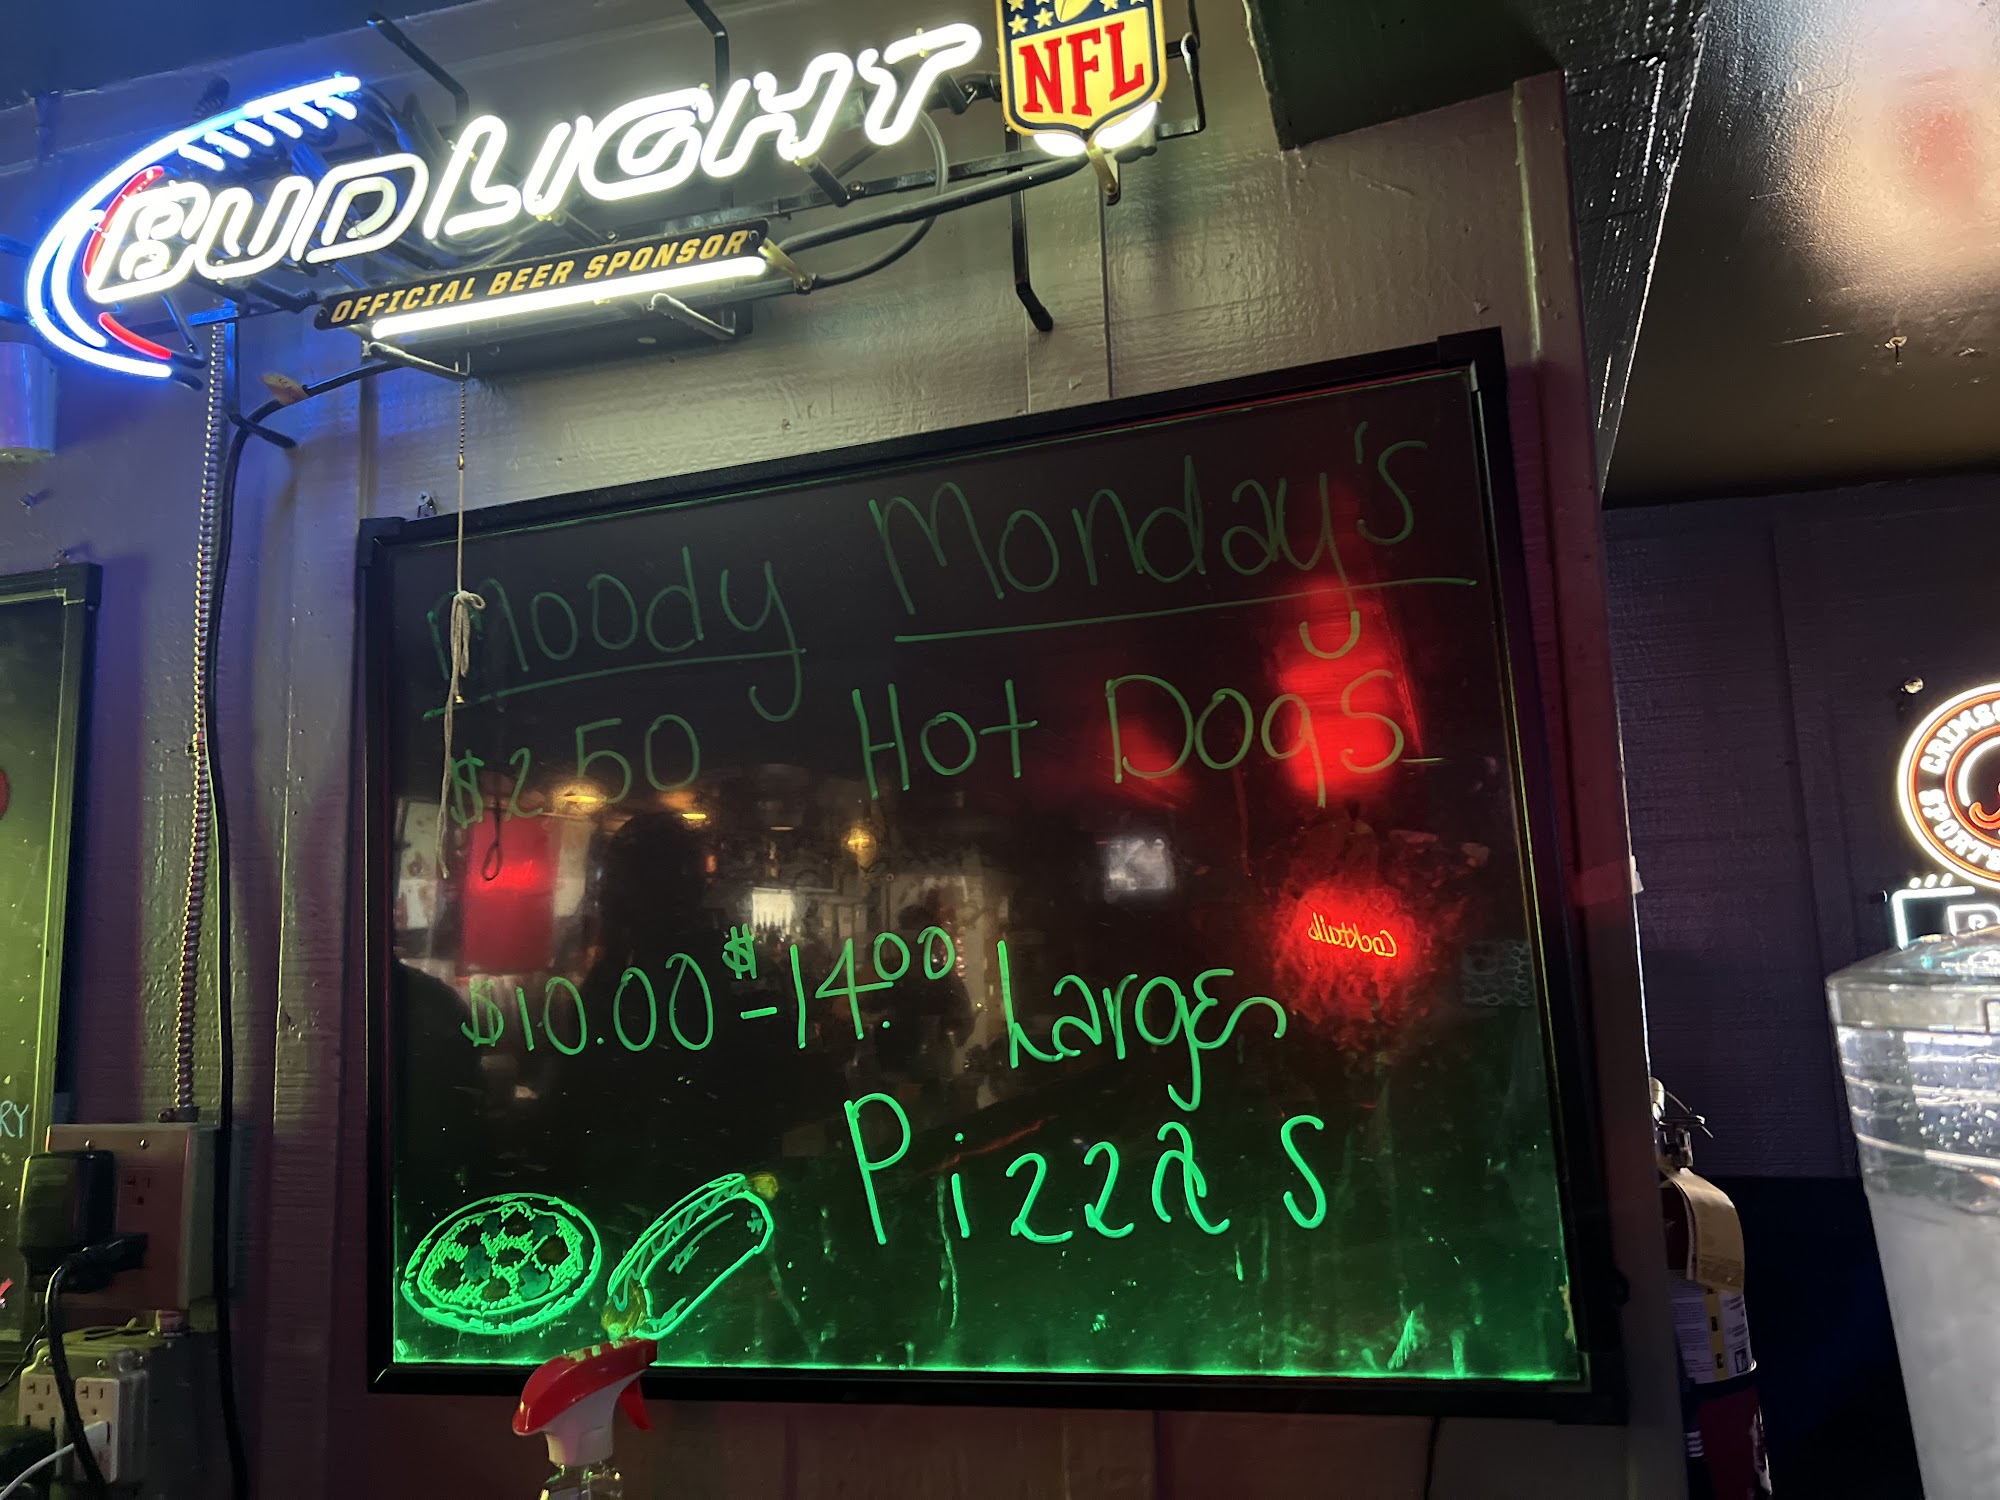 BUD LIGHT
NFL
OFFICIAL BEER SPONSOR
Moody Monday's
$2.50 Hot Dogs
$10.00 - $14.00 Large
Pizza's
Cocktails
CRIMSON
SPORTS
RY